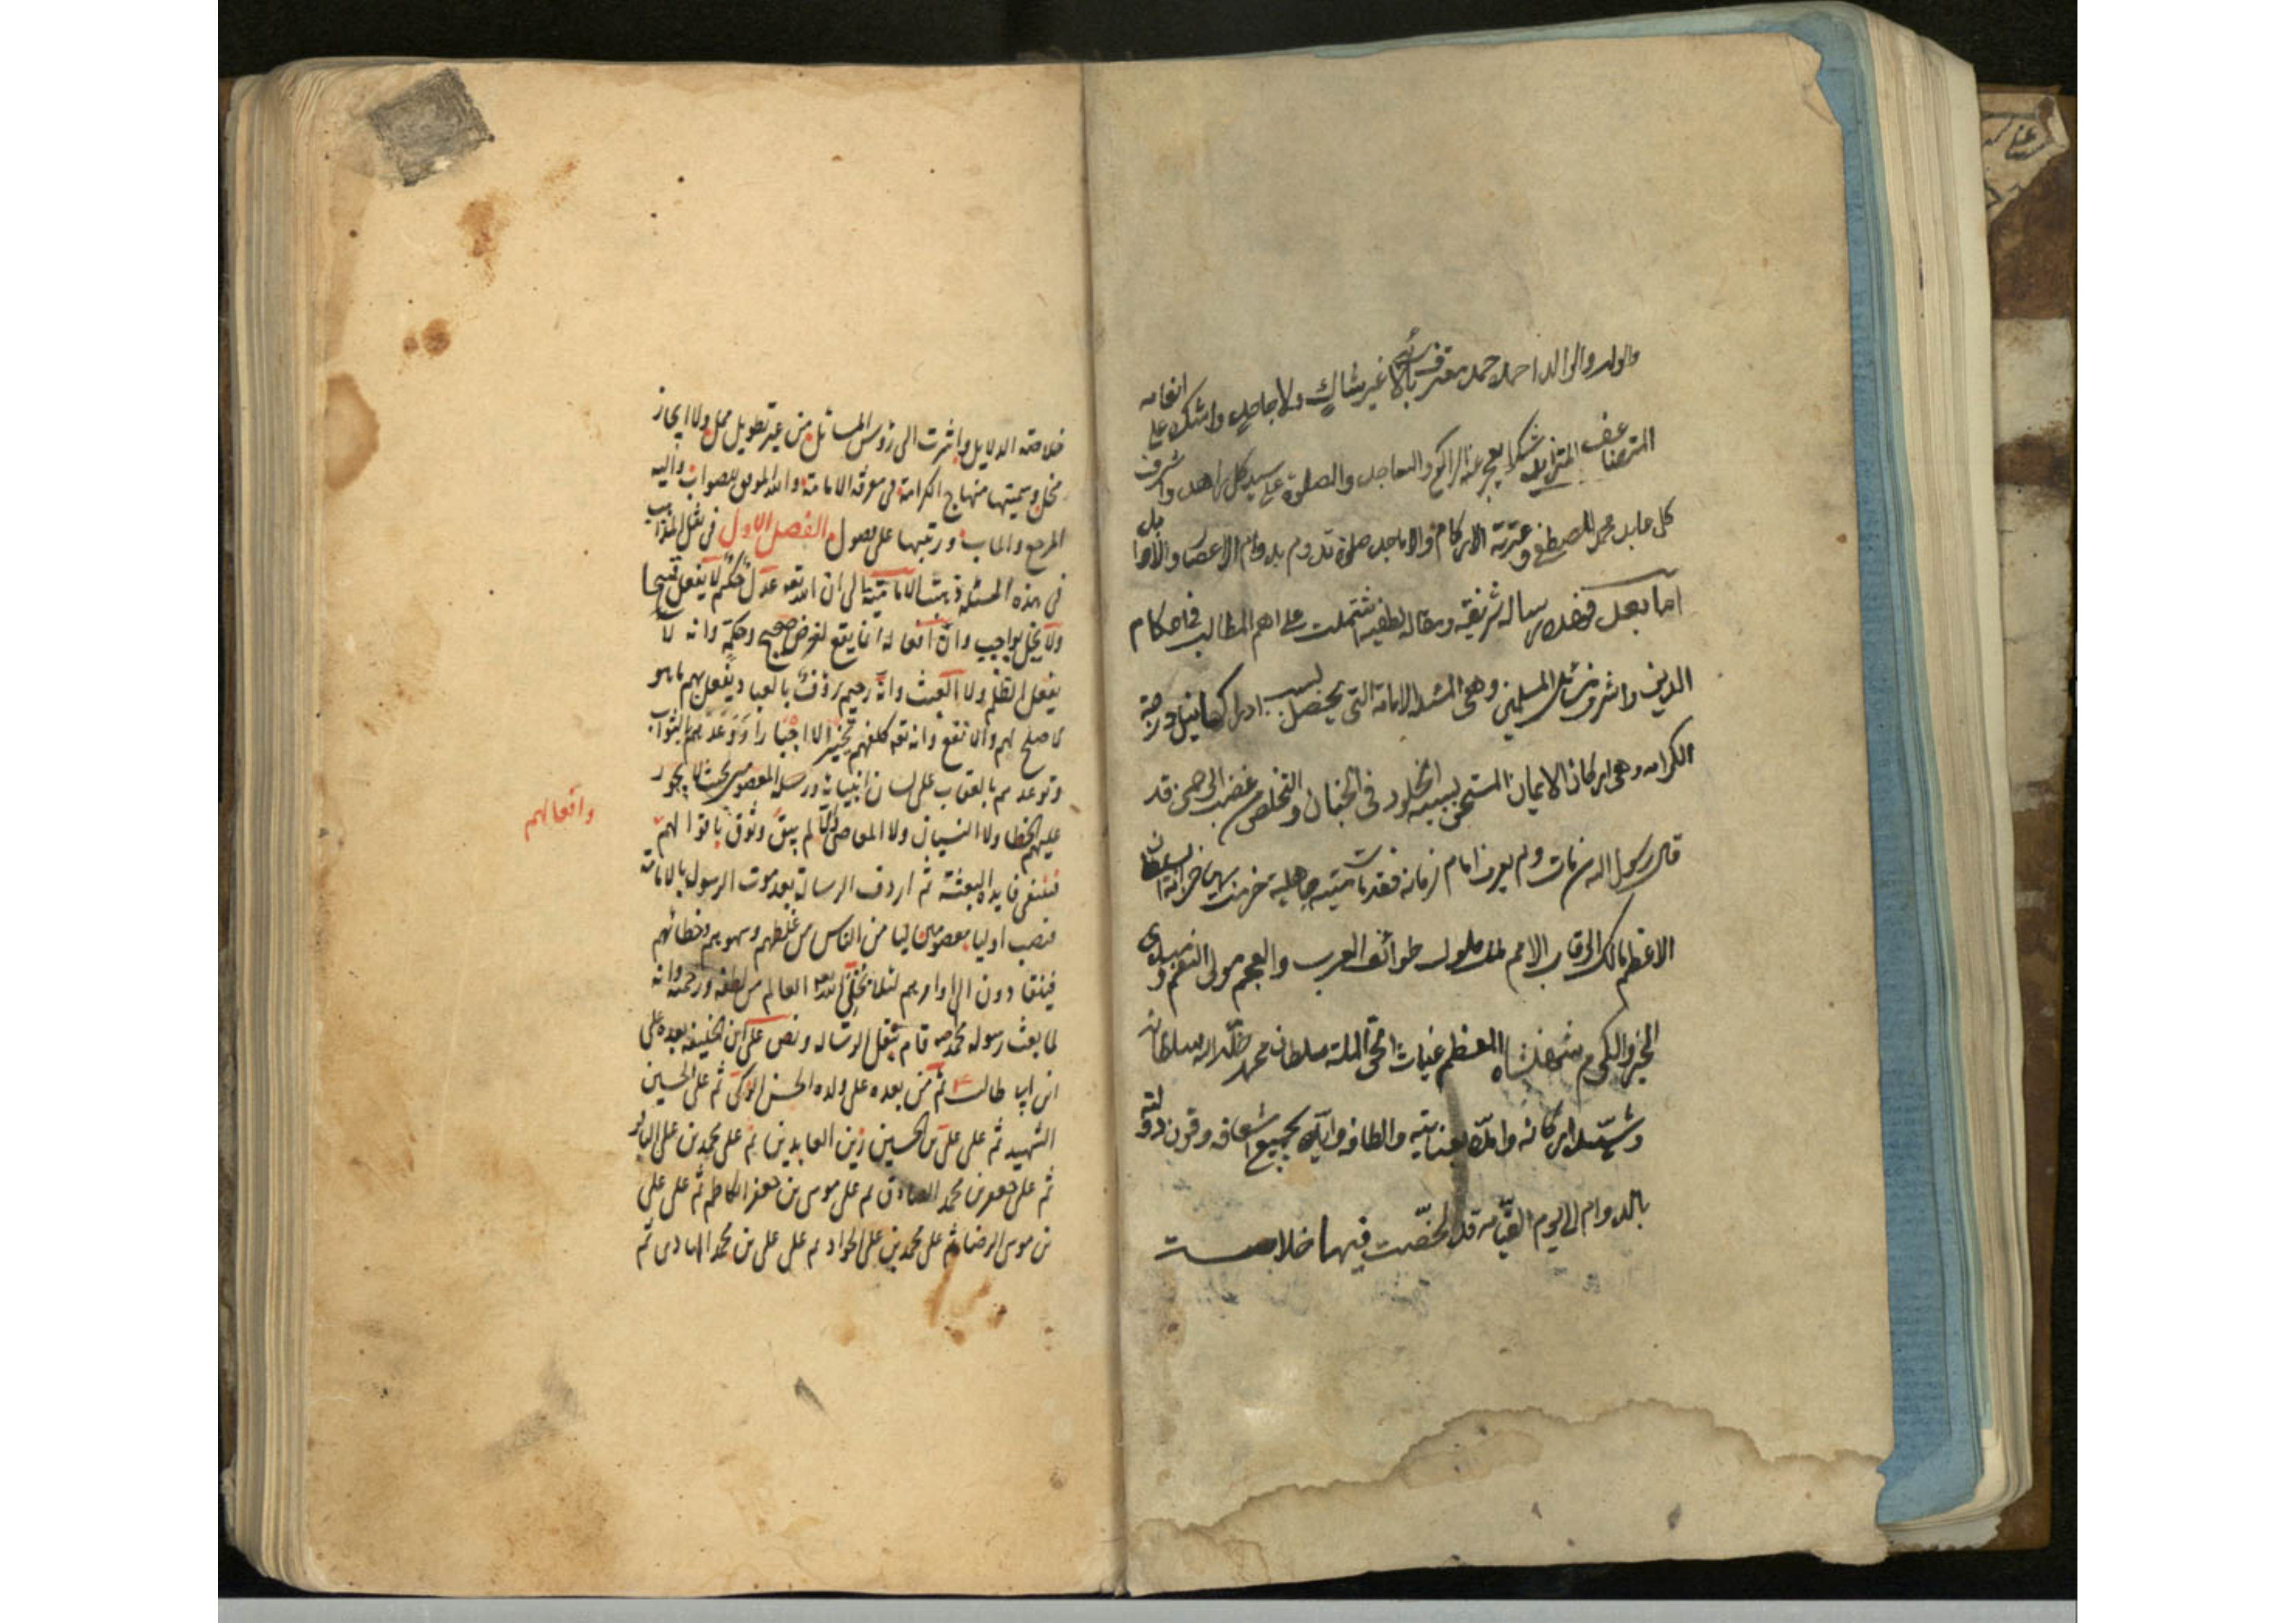 والولد والوالد احمده حمد معترف بآلائه غير شاك ولا جاحد واشكره على انعامه
المتضاعف المتزايد شكرا يعجز عنه الراكع والساجد والصلوة على سيد كل زاهد واشرف
كل عابد محمد المصطفى وعترته الاكارم والاماجد صلوة تدوم بدوام الاعصار والاوابد
اما بعد فهذه رسالة شريفة ومقالة لطيفة اشتملت على اهم المطالب في احكام
الدين واشرف مسائل المسلمين وهي مسئلة الامامة التي يحصل بسبب ادراكها نيل درجة
الكرامه وهي احد اركان الايمان المستحق بسببه الخلود في الجنان والتخلص من غضب الرحمن قد
قال رسول الله من مات ولم يعرف امام زمانه فقد مات ميتة جاهلية خدمت بها خزانة السلطان
الاعظم مالك الرقاب الامم ملك ملوك طوائف العرب والعجم مولى النعم ومسدي
الخير والكرم شاهنشاه المعظم غياث الحق والملة سلطان محمد خلد الله سلطانه
وشيد اركانه وامده بعنايته والطافه وايده بجميع اسعافه وقرن دولته
بالدوام الى يوم القيامه قد لخصت فيها خلاصت
خلاصة الدلايل واشرت الى رؤس المسائل من غير تطويل ممل ولا ايجاز
مخل وسميتها منهاج الكرامة في معرفة الامامة والله الموفق للصواب واليه
المرجع والماب ورتبتها على فصول الفصل الاول في نقل المذاهب
في هذه المسئلة ذهبت الامامية الى ان الله تعه عدل حكيم لا يفعل قبيحا
ولا يخل بواجب وان افعاله انما يقع لغرض صحيح وحكمة وانه لا
يفعل الظلم ولا العبث وانه رحيم رؤف بالعباد يفعل بهم ما هو
الاصلح لهم والانفع وانه تعه كلفهم تخييرا لا اجبارا ووعدهم بالثواب
وتوعدهم بالعقاب على لسان انبيائه ورسله المعصومين بحيث لا يجوز
عليهم الخطا ولا النسيان ولا المعاصي والا لم يبق وثوق باقوالهم
وافعالهم
فتنتفي فايدة البعثة ثم اردف الرسالة بعد موت الرسول بالامامة
فنصب اوليا معصومين ليامن الناس من غلطهم وسهوهم وخطائهم
فينقادون الى اوامرهم لئلا يخلي الله تعه العالم من لطفه ورحمته وانه
لما بعث رسوله محمدا ص قام بثقل الرسالة ونص على ان الخليفة بعده علي
ابن ابي طالب ع ثم من بعده على ولده الحسن الزكي ثم على الحسين
الشهيد ثم على علي بن الحسين زين العابدين ثم على محمد بن علي الباقر
ثم على جعفر بن محمد الصادق ثم على موسى بن جعفر الكاظم ثم على علي
بن موسى الرضا ثم على محمد بن علي الجواد ثم على علي بن محمد الهادي ثم